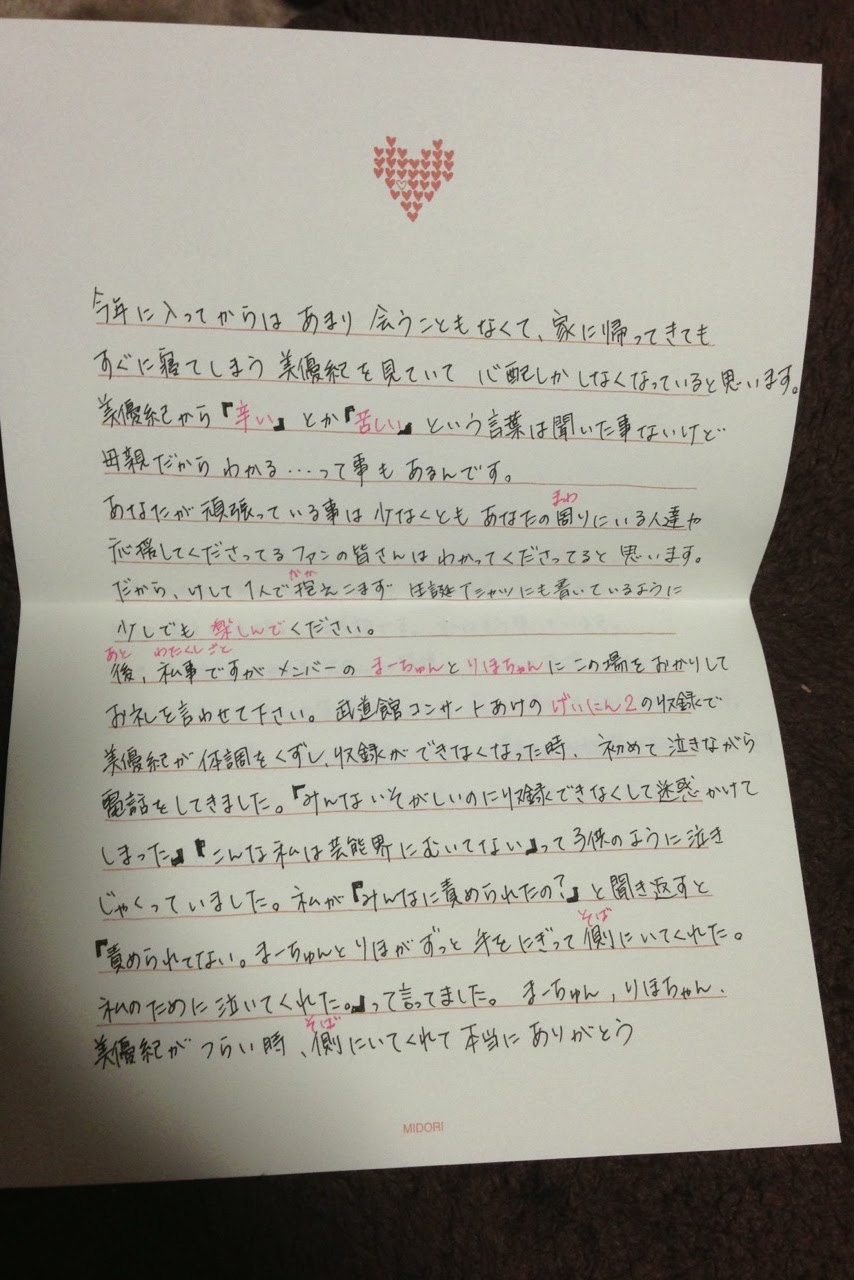 今年に入ってからは あまり 会うこともなくて、家に帰ってきても
すぐに寝てしまう 美優紀を見ていて 心配しかしなくなっていると思います。
美優紀から『辛い』とか『苦しい』という言葉は聞いた事ないけど
母親だから わかる…って事も あるんです。
まわ
あなたが 頑張っている事は 少なくとも あなたの周りにいる人達や
応援してくださってる ファンの皆さんは わかってくださってると 思います。
かか
だから、けして 1人で抱えこまず 生誕Tシャツにも書いているように
少しでも 楽しんでください。
あと わたくしごと
後、私事ですが メンバーの まーちゅんと りほちゃんに この場をおかりして
お礼を言わせて下さい。 武道館コンサートあけの げいにん2の収録で
美優紀が 体調をくずし、収録が できなくなった時、初めて 泣きながら
電話をしてきました。『みんないそがしいのに収録できなくして迷惑かけて
しまった』『こんな私は芸能界に むいてない』って子供のように泣き
じゃくっていました。私が『みんなに責められたの?』と聞き返すと
そば
『責められてない。まーちゅんと りほが ずっと 手をにぎって 側にいてくれた。
私のために 泣いてくれた。』って言ってました。 まーちゅん, りほちゃん、
そば
美優紀が つらい時、側にいてくれて 本当に ありがとう
MIDORI